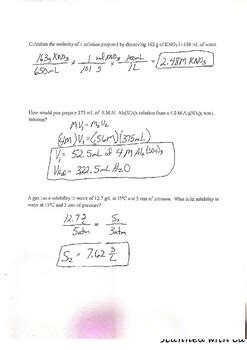 Calculate the molarity of a solution prepared by dissolving 163 g of KNO3 in 650 mL of water.
163g KNO3 / 650mL × 1 mol KNO3 / 101 g × 1000mL / 1L = 2.48M KNO3
How would you prepare 375 mL of 0.56 M Al2(SO4)3 solution from a 4.0 M Al2(SO4)3 stock
solution?
M1V1 = M2V2
(4M)V1 = (.56M)(375mL)
V1 = 52.5mL of 4M Al2(SO4)3
VH2O = 322.5mL H2O
A gas has a solubility in water of 12.7 g/L at 15°C and 5 atm of pressure. What is its solubility in
water at 15°C and 3 atm of pressure?
12.7 g/L / 5atm = S2 / 3atm
S2 = 7.62 g/L
Scanned with